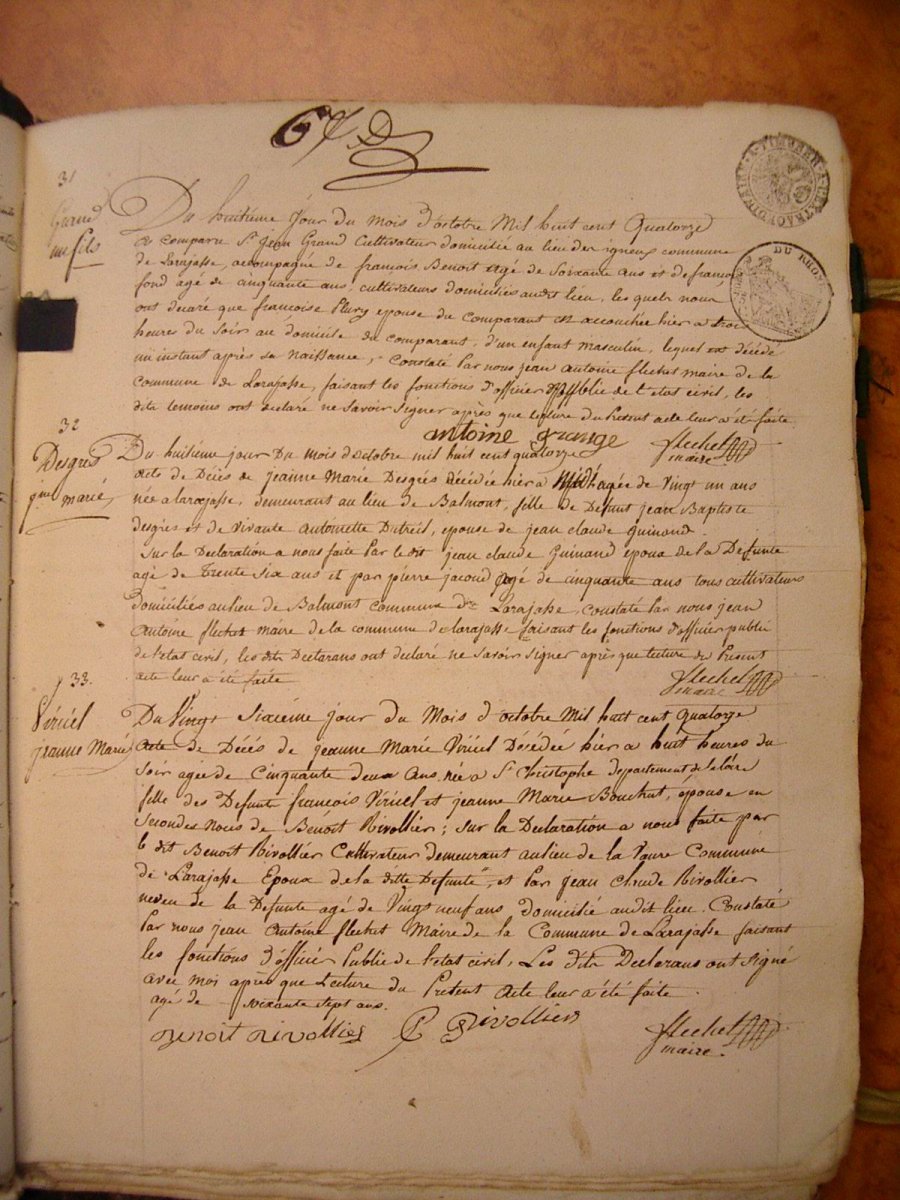 6e D
31
Grand
un fils
Du huitieme jour du mois d'octobre mil huit cent Quatorze
a comparu Sr jean Grand Cultivateur domicilié au lieu des igneux commune
de Larajasse, accompagné de françois Benoit agé de Soixante ans et de françois
fond agé de cinquante ans, cultivateurs domiciliés audit lieu, les quels nous
ont déclaré que françoise Flury epouse du comparant est accouchée hier a trois
heures du Soir au domicile du comparant, d'un enfant masculin, lequel est décédé
un instant après sa Naissance, constaté Par nous jean antoine flechet maire de la
commune de Larajasse, faisant les fonctions d'officier Publie de l'etat civil, les
dits temoins ont déclaré ne savoir signer après que lecture du Présent acte leur a été faite
antoine grange flechet
maire
32
Desgrés
jne marié
Du huitieme jour Du mois d'octobre mil huit cent quatorze
acte de Décès de jeanne Marie Desgrés décédée hier a Midi agée de Vingt un ans
née a larajasse, demeurant au lieu de Balmont, fille de Defunt jean Baptiste
desgrés et de vivante antoinette Dutreil, epouse de jean claude Guinand.
Sur la Declaration a nous faite Par le dit jean claude Guinand epoux de la Defunte
agé de Trente six ans et par pierre jacoud agé de cinquante ans tous cultivateurs
Domiciliés au lieu de Balmont commune de Larajasse, constaté Par nous jean
Antoine flechet Maire de la commune de larajasse faisant les fonctions d'officier public
de l'etat civil, les dits Declarans ont declaré ne savoir signer après que lecture du Present
acte leur a été faite flechet
maire
33.
Viricel
jeanne Marié
Du Vingt Sixieme jour du Mois d'octobre Mil huit cent quatorze
acte de Décès de jeanne Marie Viricel Décédée hier a huit heures du
soir agée de Cinquante deux ans née a St Christophe departement de la loire
fille des Defunts françois Viricel et jeanne Marie Bouchut, épouse en
secondes Noces de Benoît Rivollier; sur la Declaration a nous faite par
le dit Benoit Rivollier Cultivateur demeurant au lieu de la Vaure Commune
de Larajasse Epoux de la ditte Defunte, et Par jean Claude Rivollier
neveu de la Defunte agé de Vingt neuf ans domicilié audit lieu. Constaté
Par nous jean Antoine flechet Maire de la Commune de Larajasse faisant
les fonctions d'officier Public de l'etat civil, Les dits Declarans ont signé
avec moi après que Lecture du Present Acte leur a été faite.
agé de soixante sept ans.
Benoit Rivollier C Rivollier flechet
maire
DU RHONE